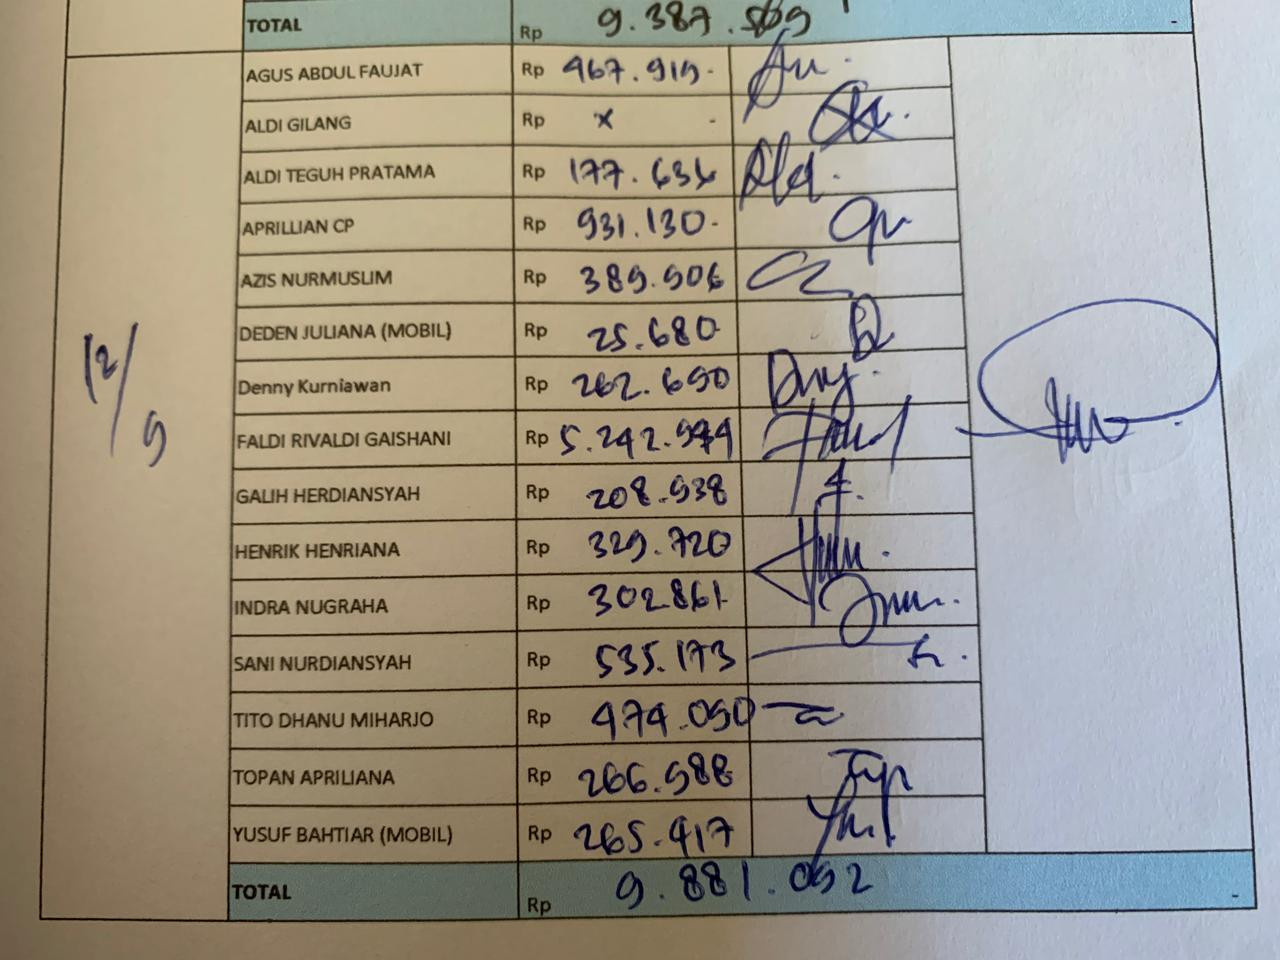 TOTAL Rp 9.387.569 -
12/9
AGUS ABDUL FAUJAT Rp 467.919-
ALDI GILANG Rp x -
ALDI TEGUH PRATAMA Rp 177.636
APRILLIAN CP Rp 931.130-
AZIS NURMUSLIM Rp 389.906
DEDEN JULIANA (MOBIL) Rp 25.680
Denny Kurniawan Rp 262.690
FALDI RIVALDI GAISHANI Rp 5.242.944
GALIH HERDIANSYAH Rp 208.938
HENRIK HENRIANA Rp 329.720
INDRA NUGRAHA Rp 302.861
SANI NURDIANSYAH Rp 535.173
TITO DHANU MIHARJO Rp 474.090
TOPAN APRILIANA Rp 266.988
YUSUF BAHTIAR (MOBIL) Rp 265.417
TOTAL Rp 9.881.092 -